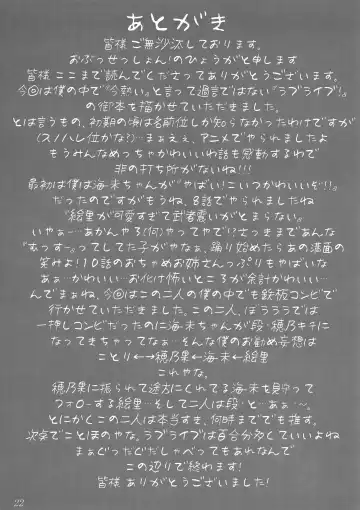 あとがき
皆様ご無沙汰しております。
おぶっせっしょん!のひょうがと申します
皆様ここまで読んでくださってありがとうございます。
今回は僕の中で『今熱い』と言って過言ではない『ラブライブ!』
の御本を描かせていただきました。
とは言うもの、初期の頃は名前位しか知らなかったわけですが
(スノハレ位かな?)…まぁえぇ、アニメでやられましたよ
もうみんなめっちゃかわいいわ話も感動するわで
非の打ち所がないね!!!
最初は僕は海未ちゃんが『やばい!こいつかわいいぞ!!』
だったのですがもうね、8話でやられましたね
『絵里が可愛すぎて武者震いがとまらない』
いやぁー…あかんやろ(何)やってやで!?さっきまであんな
『むっすー』ってしてた子がやなぁ、踊り始めたらあの満面の
笑みよ!10話のおちゃめお姉さんっぷりもやばいな
あぁ…かわいい…お化け怖いところが余計かわいい…
んでまぁね、今回はこの二人の僕の中でも鉄板コンビで
行かせていただきました。この二人、ぼららラでは
一押しコンビだったのに海未ちゃんが段々穂乃キチに
なってきちゃってなぁ…そんな僕のお勧め妄想は
ことり←→穂乃果←海未←絵里
これやな。
穂乃果に振られて途方にくれてる海未を見守って
フォローする絵里…そして二人は段々と…あぁ〜。
とにかくこの二人は本当すき、何時まででも推す。
次案でことほのやな。ラブライブは百合分多くていいよね
まぁぐっだぐだしゃべってもあれなんで
この辺りで終わります!
皆様ありがとうございました!
22